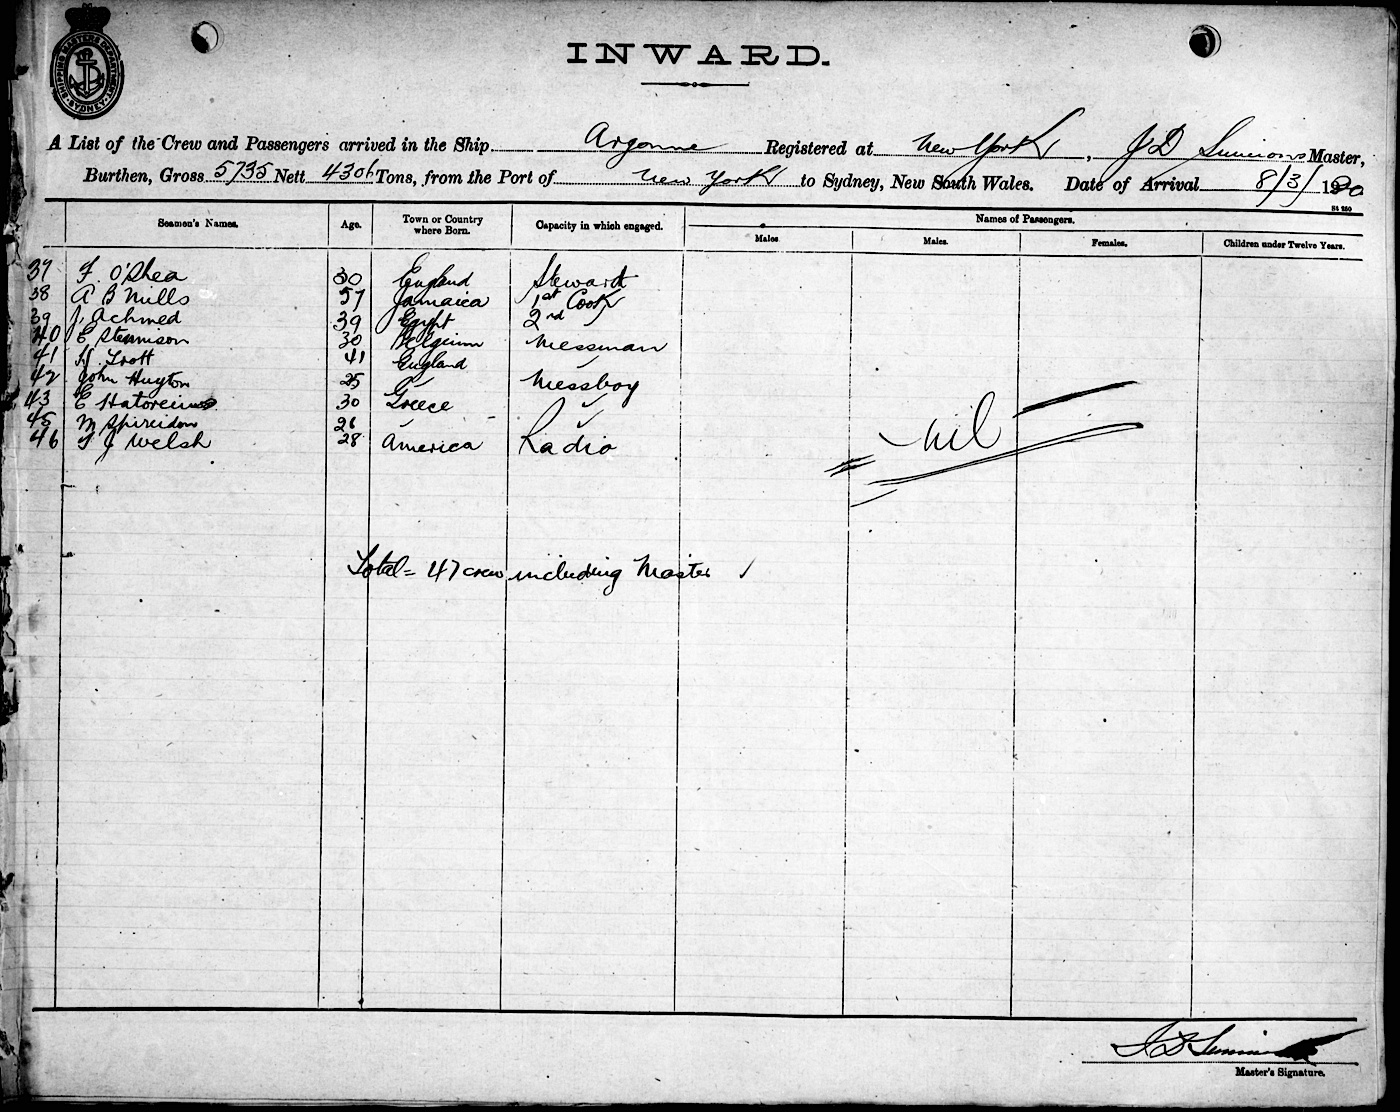 SHIPPING MASTERS DEPARTMENT
INWARD.
A List of the Crew and Passengers arrived in the Ship Argonne Registered at New York, J D Simmons Master,
Burthen, Gross 5735 Nett 4306 Tons, from the Port of New York to Sydney, New South Wales. Date of Arrival 8/3/1920
Seamen's Names. Age. Town or Country where Born. Capacity in which engaged. Names of Passengers.
Males. Males. Females. Children under Twelve Years.
37 F. O'Shea 30 England Steward
38 A B Mills 57 Jamaica 1st Cook
39 J. Achmed 39 Egypt 2nd "
40 E Stennison 30 Belgium Messman
41 H. Trott 41 England "
42 John Huyton 25 " Messboy
43 E 30 Greece "
45 M Spireidon 26 " "
46 F J Welsh 28 America Radio
nil
Total = 47 crew including Master
J D Simmons
Master's Signature.